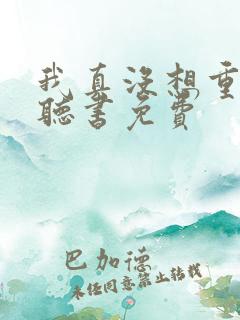 我真没想重
聽書免費
巴加德
未经同意禁止转载